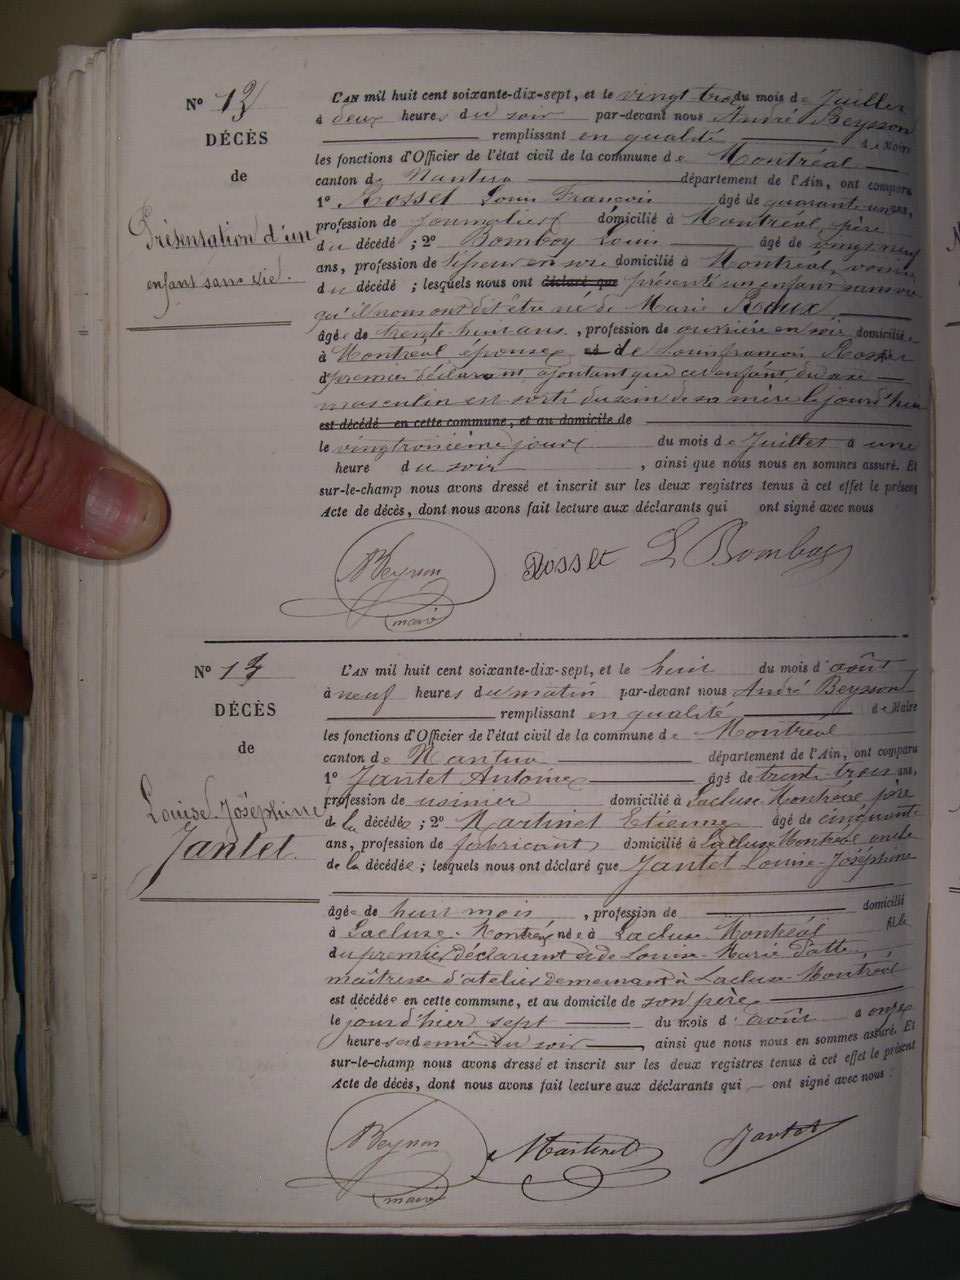 N° 12
DÉCÈS
de
Présentation d'un
enfant sans vie.
L'AN mil huit cent soixante-dix-sept, et le vingt trois du mois de Juillet
à deux heures du soir par-devant nous André Beysson
remplissant en qualité de Maire
les fonctions d'Officier de l'état civil de la commune de Montréal
canton de Nantua département de l'Ain, ont comparu
1° Rosset Louis François âgé de quarante un ans,
profession de journalier domicilié à Montréal, père
du décédé ; 2° Bomboy Louis âgé de vingt neuf
ans, profession de tisseur en soie domicilié à Montréal, voisin
du décédé ; lesquels nous ont déclaré que présenté un enfant sans vie
qu'ils nous ont dit être né de Marie Roux,
âgée de trente huit ans, profession de ouvrière en soie, domiciliée
à Montréal épouse et de de Louis françois Rosset
premier déclarant, ajoutent que cet enfant, du sexe
masculin est sorti du sein de sa mère le jourd'hui
est décédé en cette commune, et au domicile de
le vingt troisième jour du mois de Juillet à une
heure du soir, ainsi que nous nous en sommes assuré. Et
sur-le-champ nous avons dressé et inscrit sur les deux registres tenus à cet effet le présent
Acte de décès, dont nous avons fait lecture aux déclarants qui ont signé avec nous
Beysson Rosset L Bomboy
maire
N° 13
DÉCÈS
de
Louise Joséphine
Jantet.
L'AN mil huit cent soixante-dix-sept, et le huit du mois d'août
à neuf heures du matin par-devant nous André Beysson
remplissant en qualité de Maire
les fonctions d'Officier de l'état civil de la commune de Montréal
canton de Nantua département de l'Ain, ont comparu
1° Jantet Antoine âgé de trente trois ans,
profession de usinier domicilié à Lacluse Montréal père
de la décédée ; 2° Martinet Etienne âgé de cinquante
ans, profession de fabricant domicilié à Lacluse Montréal oncle
de la décédée ; lesquels nous ont déclaré que Jantet Louise Joséphine
âgée de huit mois, profession de domicilié
à Lacluse Montréal née à Lacluse Montréal fille
du premier déclarant et de Louise Marie
maîtresse d'atelier demeurant à Lacluse Montréal
est décédée en cette commune, et au domicile de son père
le jourd'hier sept du mois d'août à onze
heures et demie du soir, ainsi que nous nous en sommes assuré. Et
sur-le-champ nous avons dressé et inscrit sur les deux registres tenus à cet effet le présent
Acte de décès, dont nous avons fait lecture aux déclarants qui ont signé avec nous.
Beysson Martinet Jantet
maire